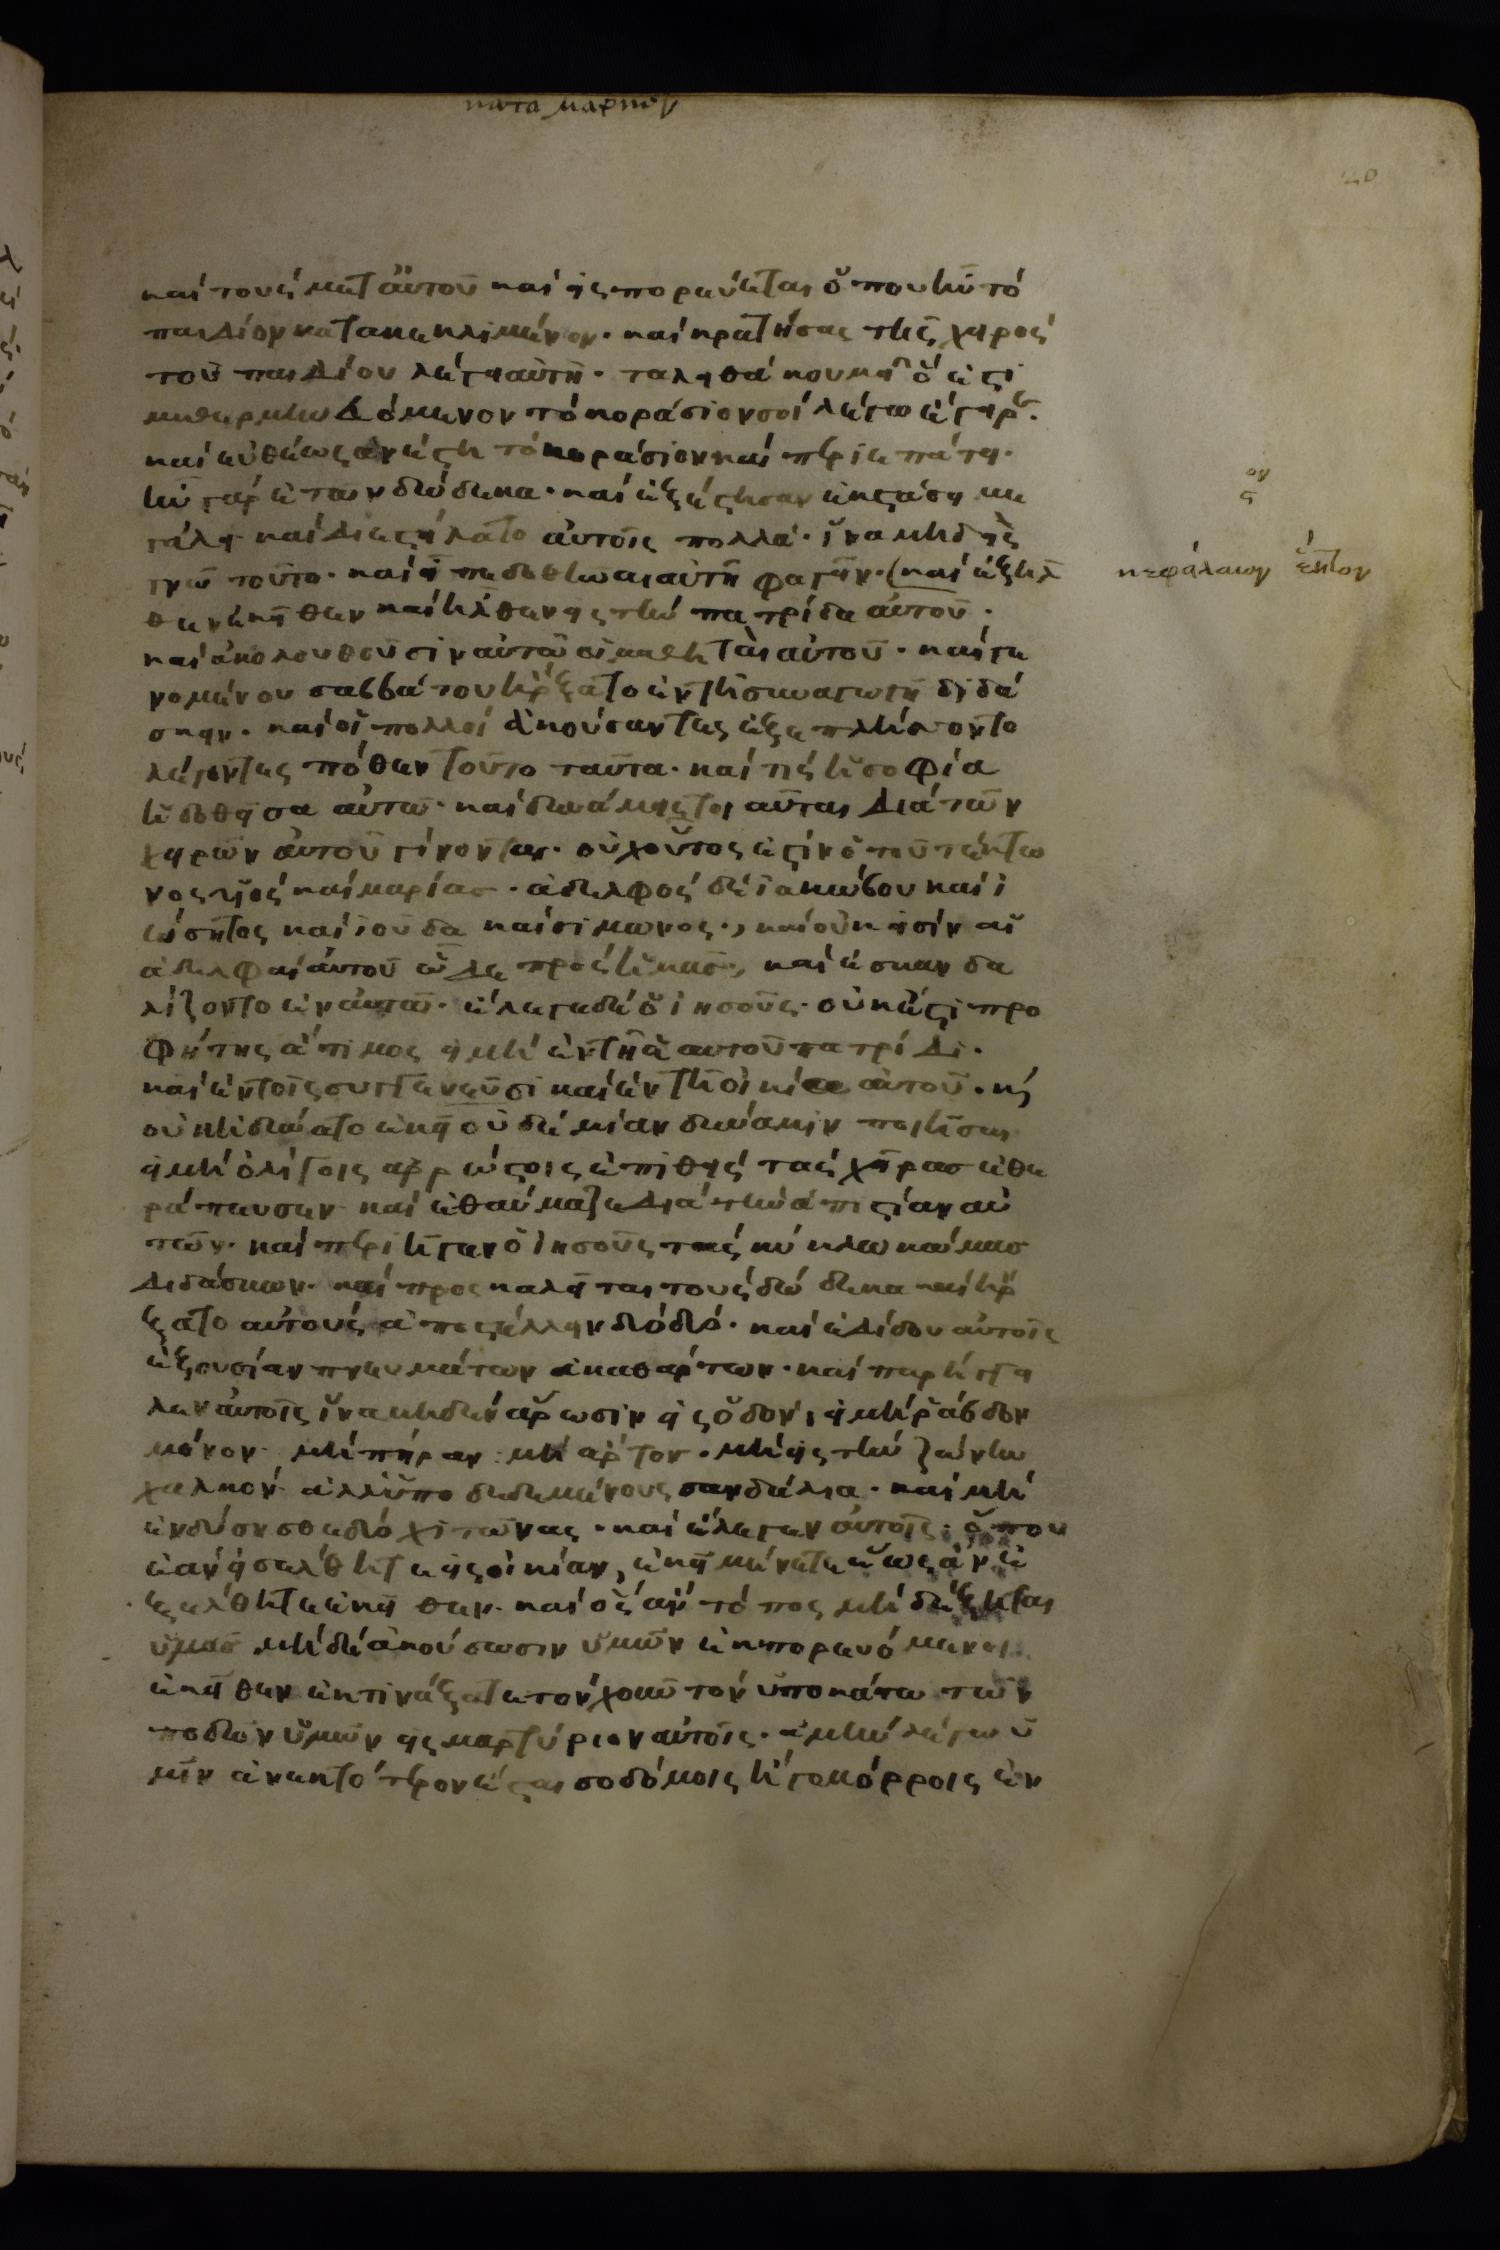 κατα μαρκον
20
καί τούς μετ αὐτοῦ καί εἰςπορεύεται ὅπου ἦν τό
παιδίον κατακεκλιμένον· καί κρατήσας τῆς χειρός
τοῦ παιδίου λέγει αὐτῆ· ταληθά κουμη ὅ ἐστι
μεθερμηνευόμενον τό κοράσιον σοί λέγω ἔγειρε.
καί εὐθέως ἀνέστη τό κοράσιον καί περιεπάτει·
ἦν γάρ ἐτῶν δώδεκα· καί ἐξέστησαν ἐκστάσει με
ον
ς
γάλη καί διεστείλατο αὐτοῖς πολλά· ἵνα μηδείς
γνῶ τοῦτο· καί εἶπε δοθῆναι αὐτῆ φαγεῖν· (καί ἐξῆλ
κεφάλαιον ἕκτον
θεν ἐκεῖθεν καί ἦλθεν εἰς τήν πατρίδα αὐτοῦ·
καί ἀκολουθοῦσιν αὐτῶ οἱ μαθηταί αὐτοῦ· καί γε
νομένου σαββάτου ἤρξατο ἐν τῆ συναγωγῆ διδά
σκειν· καί οἱ πολλοί ἀκούσαντες ἐξεπλήσσοντο
λέγοντες πόθεν τοῦτο ταῦτα· καί τίς ἡ σοφία
ἡ δοθεῖσα αὐτῶ· καί δυνάμεις τοι αῦται διά τῶν
χειρῶν αὐτοῦ γίνονται· οὐχ οὗτος ἐστίν ὁ τοῦ τέκτω
νος υἱός καί μαρίας· ἀδελφός δέ ἰακώβου καί ἰ
ωσῆτος καί ἰούδα καί σίμωνος·, καί οὐκ εἰσίν αἱ
ἀδελφαί αὐτοῦ ὧδε πρός ἡμᾶς, καί ἐσκανδα
λίζοντο ἐν αὐτῶ· ἔλεγε δέ ὁ ἰησοῦς· οὐκ ἔστι προ
φήτης ἄτιμος εἰ μή ἐν τῆ ἑαυτοῦ πατρίδι·
καί ἐν τοῖς συγγενεῦσι καί ἐν τῆ οἰκία αὐτοῦ· κ
οὐκ ἠδύνατο ἐκεῖ οὐδεμίαν δύναμιν ποιῆσαι
εἰ μή ὀλίγοις ἀρρώστοις ἐπιθείς τάς χεῖρας ἐθε
ράπευσεν· καί ἐθαύμαζε διά τήν ἀπιστίαν αὐ
τῶν· καί περιῆγεν ὁ ἰησοῦς τάς κύκλω κώμας
διδάσκων· καί προςκαλεῖται τούς δώδεκα καί ἤρ
ξατο αὐτούς ἀποστέλλειν δύο δύο· καί ἐδίδου αὐτοῖς
ἐξουσίαν πνευμάτων ἀκαθάρτων· καί παρήγγει
λεν αὐτοῖς ἵνα μηδέν αἴρωσιν εἰς ὅδόν, εἰ μή ῥάβδον
μόνον· μή πήραν· μή ἄρτον· μή εἰς τήν ζώνην
χαλκόν· ἀλλ ὑποδεδεμένους σανδάλια· καί μή
ἐνδύσησθε δύο χιτῶνας· καί ἔλεγεν αὐτοῖς· ὅπου
ἐάν εἰσέλθητε εἰς οἰκίαν, ἐκεῖ μένετε ἕως ἄν ἐ
ξέλθητε ἐκεῖθεν· καί ὅς ἄν τόπος μή δέξηται
ὑμᾶς μηδέ ἀκούσωσιν ὑμῶν ἐκπορευόμενοι
ἐκεῖθεν ἐκτινάξατε τόν χοῦν τόν ὑποκάτω τῶν
ποδῶν ὑμῶν εἰς μαρτύριον αὐτοῖς· ἀμήν λέγω ὑ
μῖν ἀνεκτότερον ἔσται σοδόμοις ἤ γομόρροις ἐν